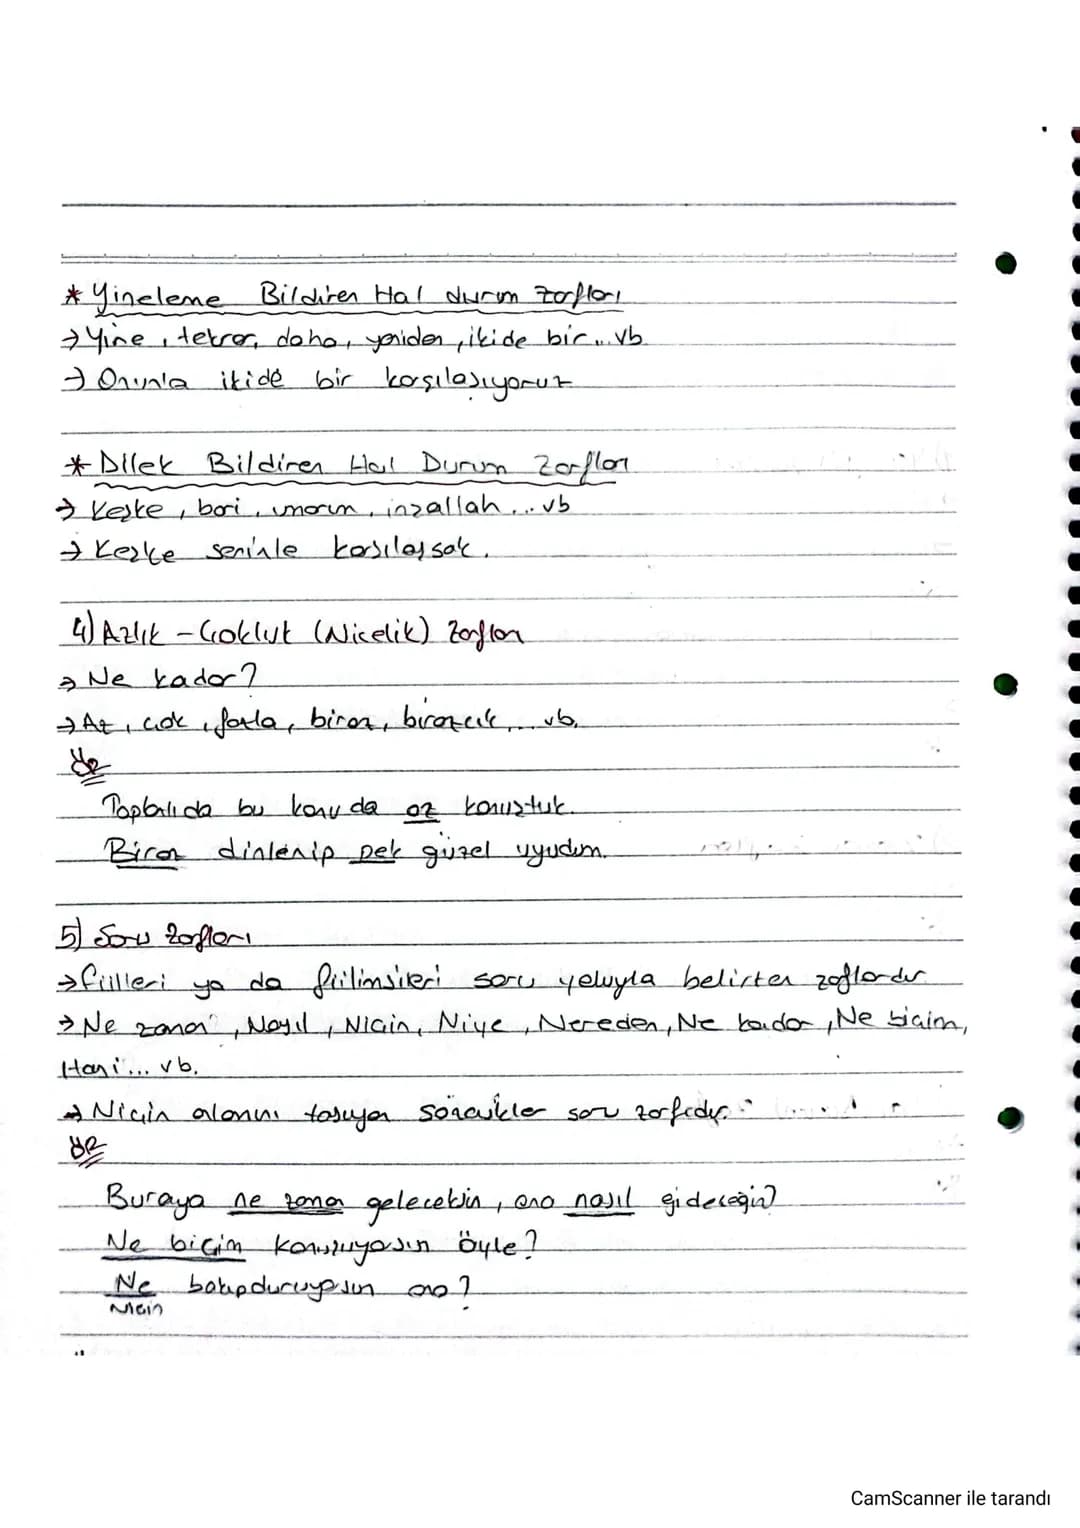 * Yineleme Bildiren Hal durum zarfları
→ Yine, tekrar, daha, yeniden, ikide bir... vb.
→ Onunla ikide bir karşılaşıyoruz
* Dilek Bildiren Hal Durum Zarfları
→ Keşke, bari, umarım, inşallah... vb
→ Keşke seninle karşılaşsak.
4) Azlık - Çokluk (Nicelik) Zarfları
→ Ne kadar?
→ Az, çok, fazla, biraz, birazcık... vb.
ÖR
Toplantıda bu konuda az konuştuk.
Biraz dinlenip pek güzel uyudum.
5) Soru Zarfları
→ fiilleri ya da fiilimsileri soru yoluyla belirten zarflardır
→ Ne zaman, Nasıl, Niçin, Niye, Nereden, Ne kadar, Ne biçim,
Hani... vb.
→ Niçin anlamını taşıyan sözcükler soru zarfıdır.
ÖR
Buraya ne zaman geleceksin, ona nasıl gideceğiz?
Ne biçim konuşuyorsun öyle?
Ne bakıp duruyorsun ona?
Niçin
CamScanner ile tarandı